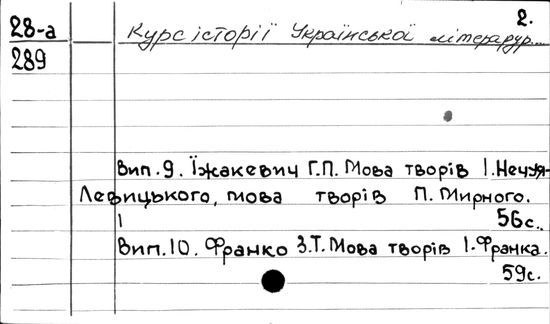 2.
28-а Курс історії Української літерарур...
289
Вип.9. Їжакевич Г.П. Мова творів І.Нечуя-
Левицького, мова творів П. Мирного.
1 56с.
Вип.10. Франко З.Т. Мова творів І.Франка.
59с.